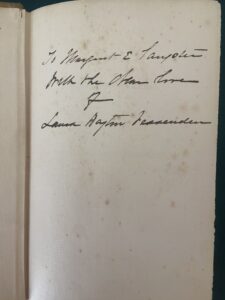 To Margaret E Sangster
With the dear love
of
Laura Dayton Fessenden